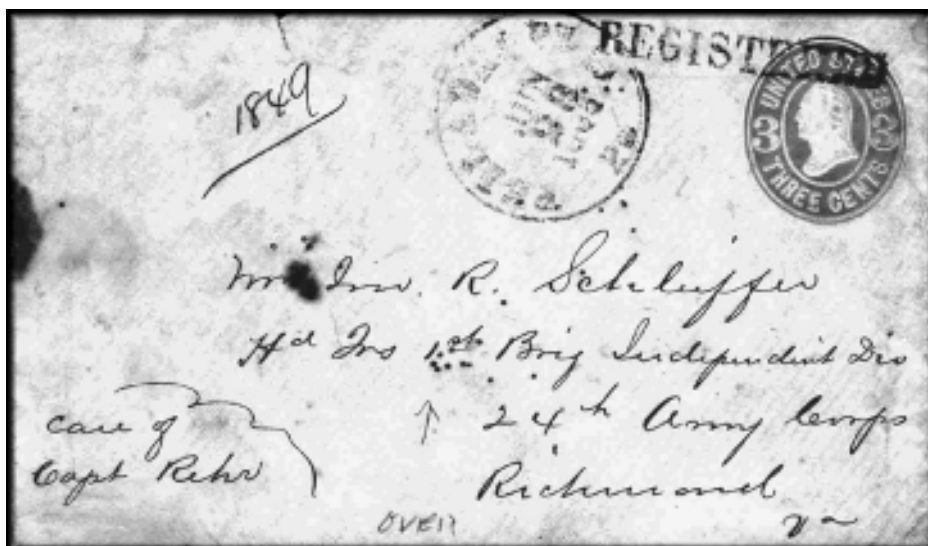 REGISTERED
1849
UNITED STATES
3 3
THREE CENTS
JUN
PA
Mr Jno. R. Schluffer
Hd Qrs 1st Brig Independent Div
24th Army Corps
Richmond
Va
care of
Capt Rehr
OVER